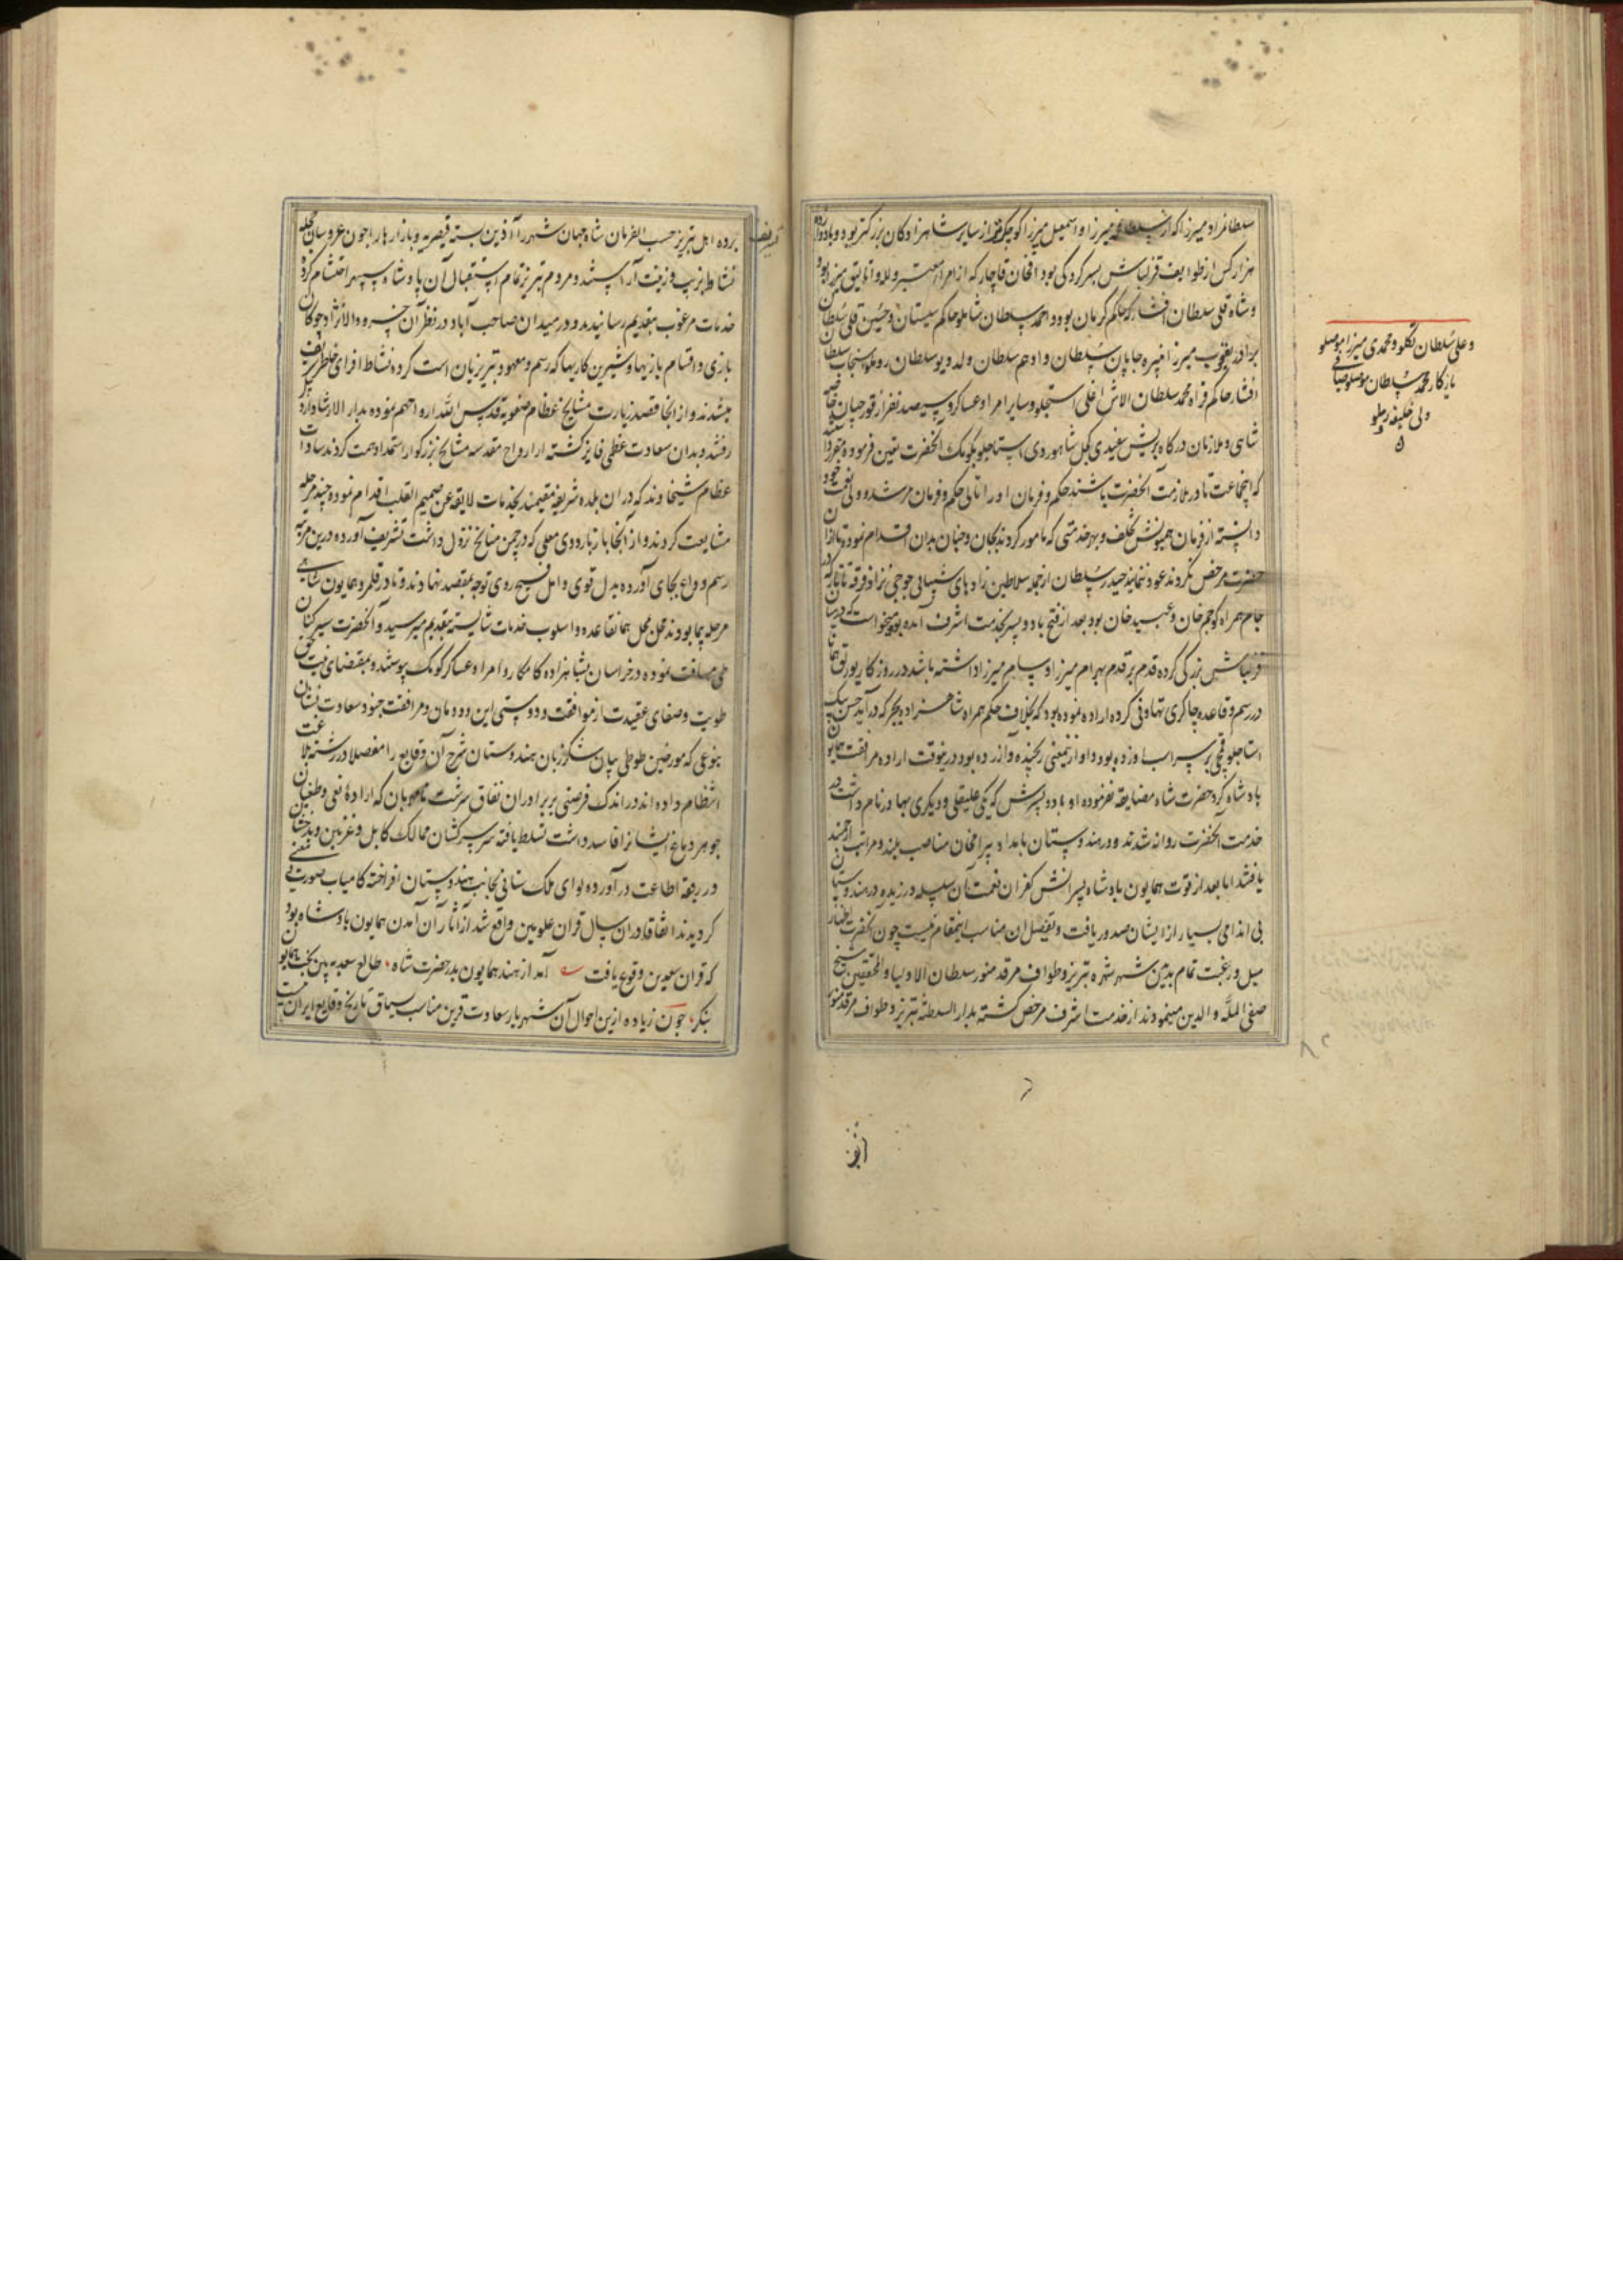 سلطانمراد میرزا که از سلطان میرزا و اسمعیل میرزا کوچکتر و از سایر شاهزادکان بزرکتر بود و با دوازده
هزار کس از طوایف قزلباش بسرکردکی بوداقخان قاجار که از امراء معتبر و لله و اتالیق میرزا بود
و شاه قلی سلطان افشار که حاکم کرمان بود و احمد سلطان شاملو حاکم سیستان و حسین قلی سلطان
برادر یعقوب میرزا نبیره جایان سلطان و ادهم سلطان ولد دیو سلطان روملو سنجاب سلطان
افشار حاکم فراه محمد سلطان الاش اغلی استاجلو و سایر امرا و عساکر و سیصد نفر از قورچیان خاصه
شاهی و ملازمان درکاه بریش سفیدی کچل شاهوردی استاجلو بکومک آنحضرت تعین فرموده مقرر داشتند
که اینجماعت تا در ملازمت آنحضرت باشند حکم و فرمان او را تالی حکم و فرمان مرشد و ولی نعمت خود
دانسته از فرمان همیونش تخلف و بهر خدمتی که مامور کردند بجان و جنان بدان اقدام نموده تا ازان
حضرت مرخص نکردند عود ننمایند حیدر سلطان از جمله سلاطین زادهای شیبانی جوجی نژاد فرقه تاتار که در
جام همراه کوجم خان و عبید خان بود بعد از فتح با دو پسر بخدمت اشرف آمده بود میخواست که در میان
قزلباش بزرکی کرده قدم بر قدم بهرام میرزا و سام میرزا داشته باشد در روز کار یورتوقها
در رسم و قاعده چاکری تهاونی کرده اراده نموده بود که بخلاف حکم همراه شاهزاده بجرکه درآید حسن بیک
استاجلو قمچی بر سر اسب او زده بود و او ازینمعنی رنجیده و آزرده بود درینوقت اراده مرافقت همایون
پادشاه کرد حضرت شاه مضایقه نفرموده او با دو پسرش که یکی علیقلی و دیکری بهادر نام داشت در
خدمت آنحضرت روانه شدند و در هندوستان بامداد بیرامخان مناصب بلند و مراتب ارجمند
یافتند اما بعد از فوت همایون پادشاه پسرانش کفران نعمت آن سلسله ورزیده در هندوستان
بی اندامی بسیار از ایشان صدور یافت و تفصیل ان مناسب اینمقام نیست چون آنحضرت اظهار
میل و رغبت تمام بدیدن شهر شهره تبریز و طواف مرقد منور سلطان الاولیا و المحققین شیخ
صفی المله و الدین مینمودند از خدمت اشرف مرخص کشته بدار السلطنه تبریز و طواف مرقد منور
و علی سلطان تکلو و محمدی میرزا موصلو
یادکار محمد سلطان موصلو صباغی
ولی خلیفه روملو
برده اهل تبریز حسب الفرمان شاه جهان شهر را آذین بسته قیصریه و بازارها را چون عروسان حجله
نشاط بزیب و زینت آراستند و مردم تبریز تمام استقبال آن پادشاه سپهر احتشام کرده
خدمات مرغوب بتقدیم رسانیدند و در میدان صاحب آباد در نظر آن خسرو والانژاد چوکان
بازی و اقسام بازیها و شیرین کاریها که رسم و معهود تبریزیان است کرده نشاط افزای خاطر شریف
میشدند و از انجا قصد زیارت مشایخ عظام صفویه قدس الله ارواحهم نموده بدار الارشاد اردبیل
رفتند و بدان سعادت عظمی فایز کشته از ارواح مقدسه مشایخ بزرکوار استمداد همت کردند سادات
عظام شیخاوند که در ان بلده شریفه مقیمند بخدمات لایقه عن صمیم القلب اقدام نموده چند مرحله
مشایعت کردند و از آنجا باز باردوی معلی که در چمن میانج نزول داشت تشریف آورده درین مرتبه
رسم وداع بجای آورده بدل قوی و امل فسیح روی توجه بمقصد نهاوند و تا در قلمرو همایون شاهی
مرحله پیما بودند محل بمحل همان قاعده و اسلوب خدمات شایسته بتقدیم میرسید و آنحضرت سیر کنان
طی مسافت نموده در خراسان بشاهزاده کامکار و امرا و عساکر کومک پیوستند و بمقتضای نیت حق
طویت و صفای عقیدت از موافقت و دوستی این دودمان و مرافقت جنود سعادت نشان
بنوعی که مورخین طوطی بیان شکر زبان هندوستان شرح آن وقایع را مفصلا در رشته بلاغت
انتظام داده اند در اندک فرصتی بر برادران نفاق سرشت که اراده نفی و طغیان
جوهر دماغ ایشانرا فاسد داشت تسلط یافته سر سرکشان ممالک کابل و غزنین و بدخشان
در ربقه اطاعت درآورده لوای ملک ستانی بجانب هندوستان افراخته کامیاب صورت و معنی
کردیدند اتفاقا دران سال قران علویین واقع شد از آثار آن آمدن همایون پادشاه بود
که قران سعدین وقوع یافت آمد از هند همایون بدر حضرت شاه طالع سعد ببین بخت همایون
بنکر چون زیاده ازین احوال آن شهریار سعادت قرین مناسب سیاق تاریخ وقایع ایران نیست